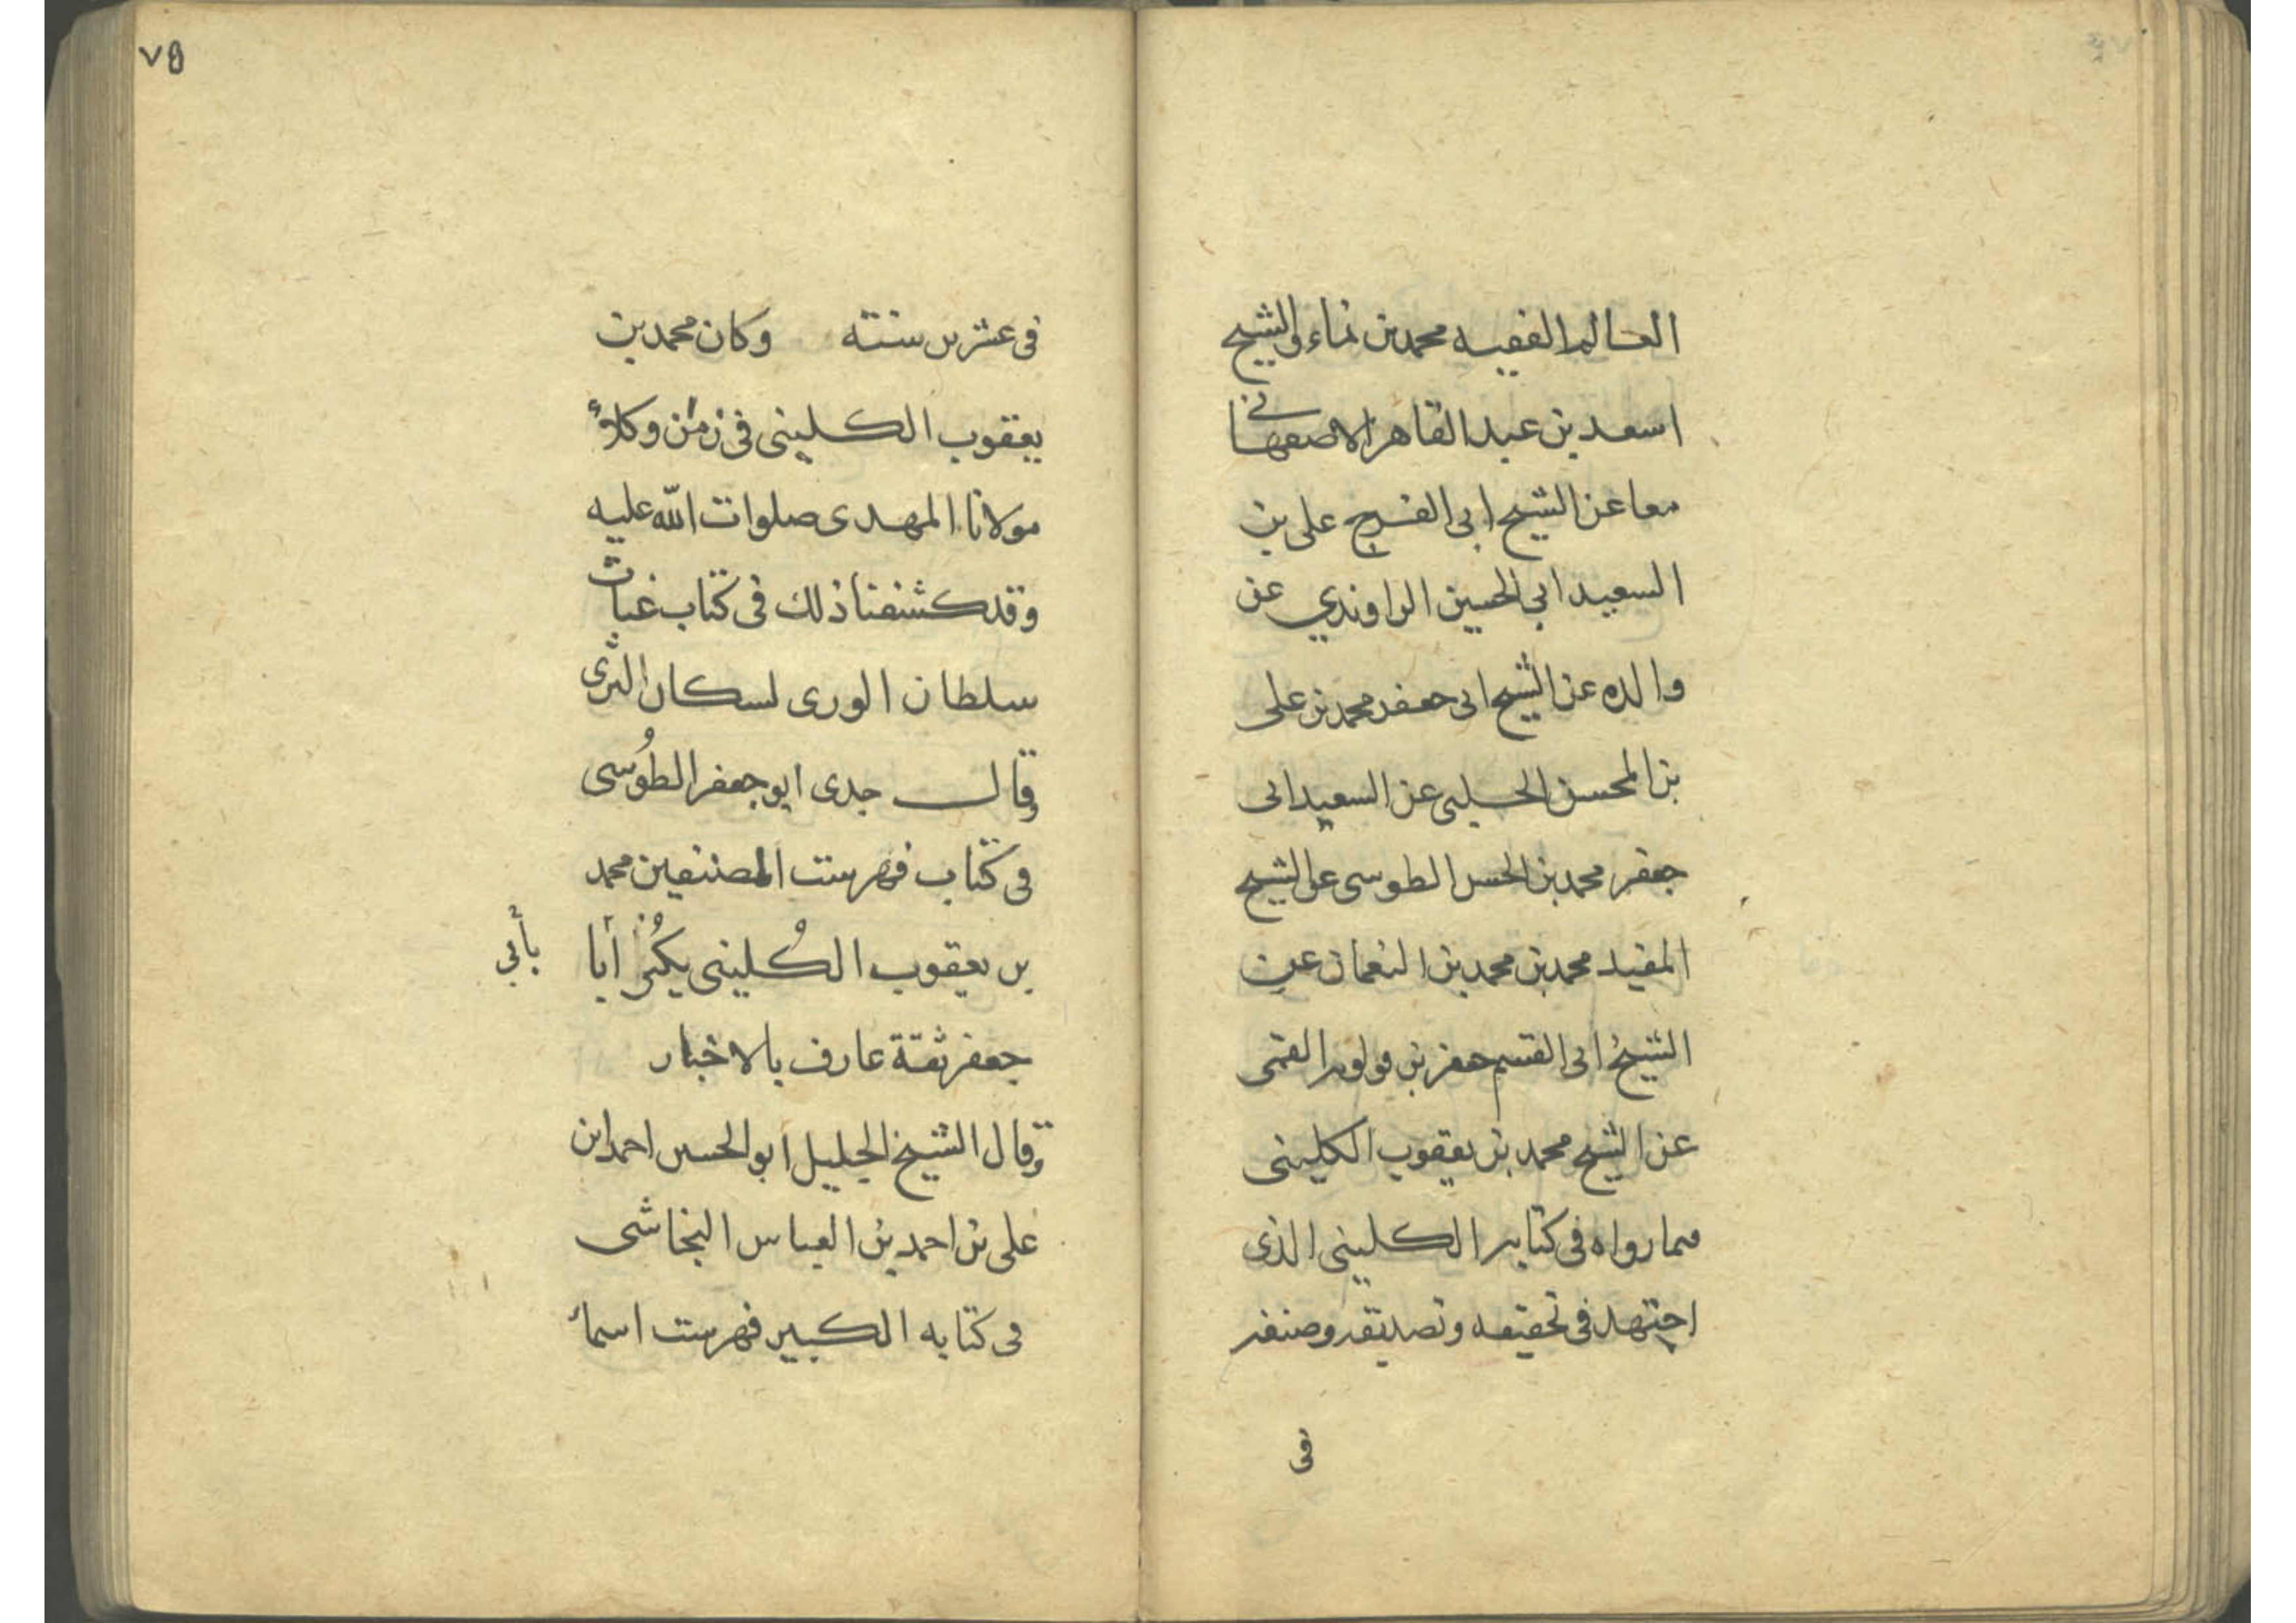 العالم الفقيه محمد بن نماء والشيخ
اسعد بن عبد القاهر الاصفهاني
معا عن الشيخ ابى الفرج على بن
السعيد ابي الحسين الراوندي عن
والده عن الشيخ ابى جعفر محمد بن على
بن المحسن الحلبى عن السعيد ابى
جعفر محمد بن الحسن الطوسى عن الشيخ
المفيد محمد بن محمد بن النعمان عن
الشيخ ابى القسم جعفر بن قولويه القمى
عن الشيخ محمد بن يعقوب الكلينى
مما رواه فى كتابه الكلينى الذى
اجتهد فى تحقيقه وتصديقه وصنفه
فى
٧٥
فى عشرين سنته وكان محمد بن
يعقوب الكلينى فى زمن وكلاء
مولانا المهدى صلوات الله عليه
وقد كشفنا ذلك فى كتاب غياث
سلطان الورى لسكان الثرى
وقال جدى ابو جعفر الطُوسى
فى كتاب فهرست المصنفين محمد
بن يعقوب الكُلينى يكنى أبا
بأبي
جعفر ثقة عارف بالاخبار
وقال الشيخ الجليل ابو الحسين احمد ابن
على بن احمد بن العباس النجاشى
فى كتابه الكبير فهرست اسماء